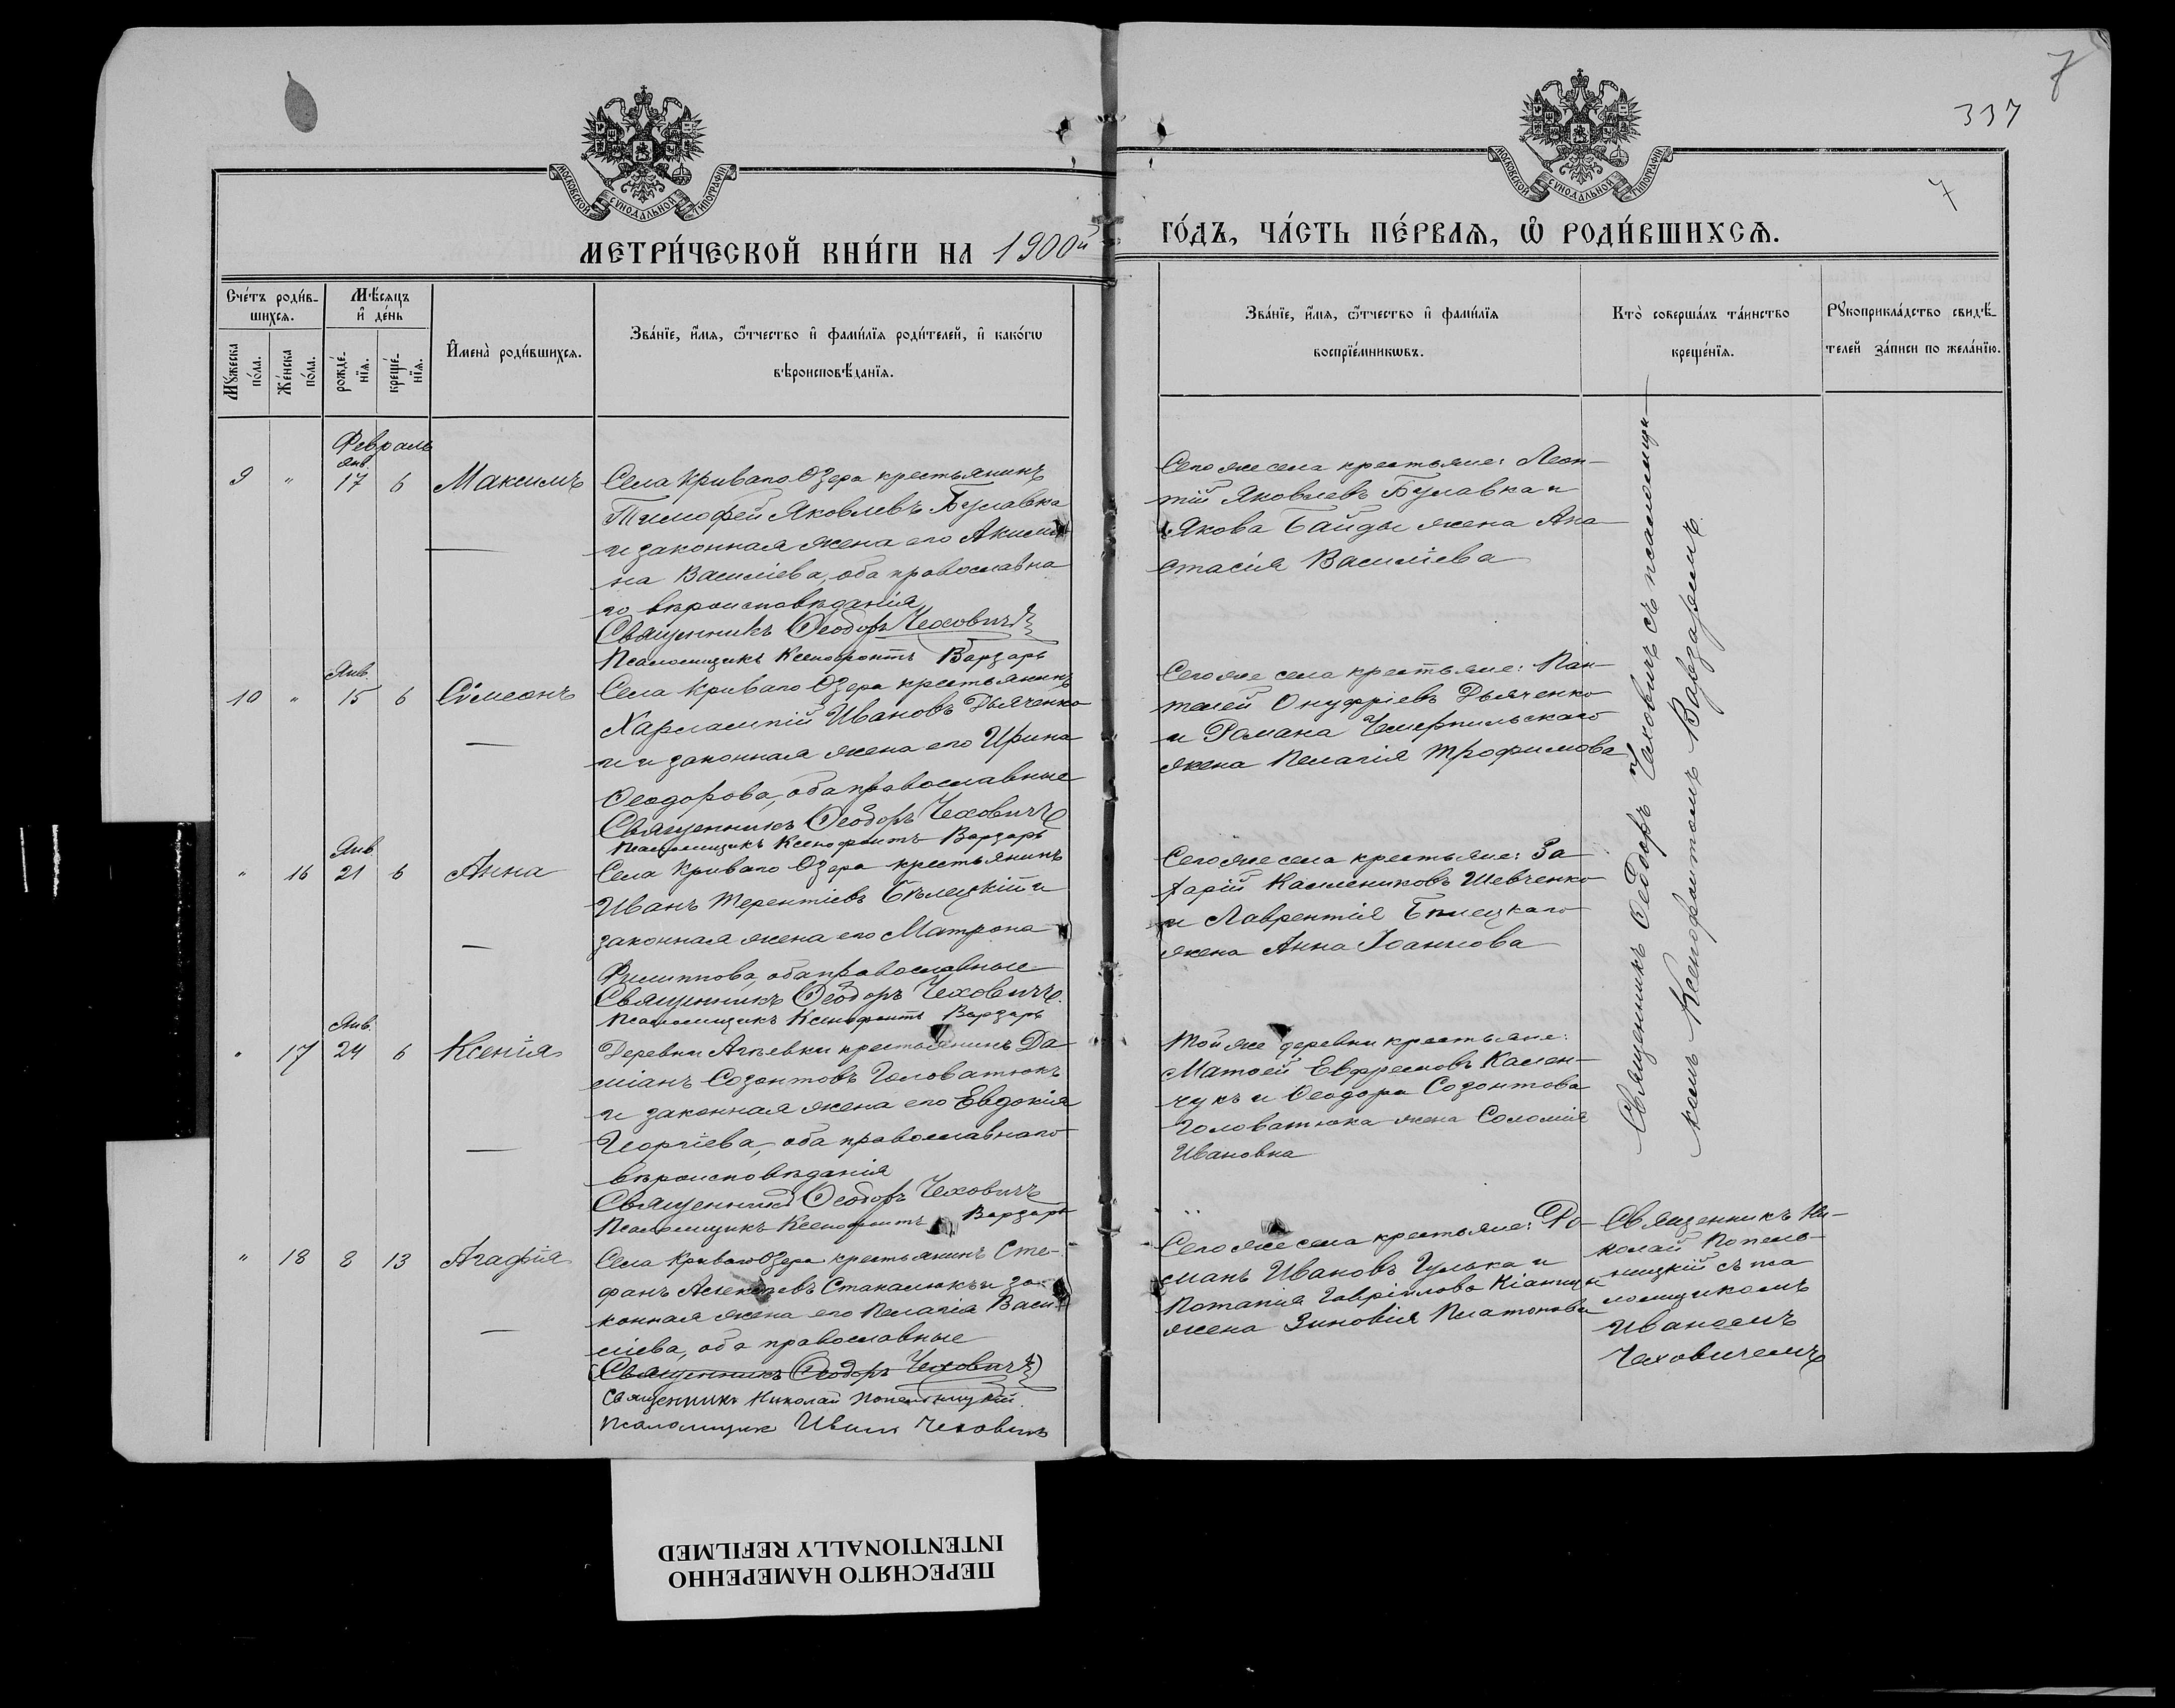 7
337
7
МОСКОВСКОЙ СУНОДАЛЬНОЙ ТИПОГРАФІИ
МОСКОВСКОЙ СУНОДАЛЬНОЙ ТИПОГРАФІИ
МЕТРИ́ЧЕСКОЙ КНИ́ГИ НА 1900й
ГО́ДЪ, ЧА́СТЬ ПЕ́РВАѦ, Ѡ҆ РОДИ́ВШИХСѦ.
Сче́тъ роди́в-
шихсѧ.
Мѣ́сѧцъ
и҆ де́нь
Мꙋ́жеска
по́ла.
Же́нска
по́ла.
рожде́-
нїѧ.
креще́-
нїѧ.
И҆мена̀ роди́вшихсѧ.
Зва́нїе, и҆́мѧ, ѻ҆́тчество и҆ фами́лїѧ роди́телей, и҆ како́гѡ
вѣроисповѣ́данїѧ.
Зва́нїе, и҆́мѧ, ѻ҆́тчество и҆ фами́лїѧ
воспрїе́мникѡвъ.
Кто̀ соверша́лъ та́инство
креще́нїѧ.
Рꙋкоприкла́дство свидѣ́-
телей за́писи по жела́нїю.
Февраль
Янв.
9 " 17 6 Максимъ
Села Криваго Озера крестьянинъ
Тимофей Яковлевъ Булавка
и законная жена его Акили-
на Василіева, оба православна
го вѣроисповѣданія
Священникъ Ѳеодоръ Чеховичъ
Псаломщикъ Ксенофонтъ Варзарь
Сего же села крестьяне: Леон-
тій Яковлевъ Булавка и
Якова Байды жена Ана
стасія Василіева
Янв.
10 " 15 6 Сѵмеонъ
Села Криваго Озера крестьянинъ
Харлампій Ивановъ Дьяченко
и и законная жена его Ирина
Ѳеодорова, оба православные
Священникъ Ѳеодоръ Чеховичъ
Псаломщикъ Ксенофонтъ Варзарь
Сего же села крестьяне: Пан-
телей Онуфріевъ Дьяченко
и Романа Чемерпильскаго
жена Пелагія Трофимова
Янв.
" 16 21 6 Анна
Села Криваго Озера крестьянинъ
Иванъ Терентіевъ Бѣлецкій и
законная жена его Матрона
Филиппова, оба православные
Священникъ Ѳеодоръ Чеховичъ
Псаломщикъ Ксенофонтъ Варзарь
Сего же села крестьяне: За
харій Калениковъ Шевченко
и Лаврентія Бѣлецкаго
жена Анна Іоаннова
Янв.
" 17 24 6 Ксенія
Деревни Агѣевки крестьянинъ Да
міанъ Созонтовъ Головатюкъ
и законная жена его Евдокія
Георгіева, оба православнаго
вѣроисповѣданія
Священникъ Ѳеодоръ Чеховичъ
Псаломщикъ Ксенофонтъ Варзарь
Той же деревни крестьяне:
Матѳей Ефремовъ Камен-
чукъ и Ѳеодора Созонтова
Головатюка жена Соломія
Ивановна
Священникъ Ѳеодоръ Чеховичъ съ псаломщи-
комъ Ксенофонтомъ Варзаремъ
" 18 8 13 Агафія
Села Криваго Озера крестьянинъ Сте-
фанъ Алексѣевъ Стакалюкъ и за-
конная жена его Пелагія Васи
ліева, оба православные
(Священникъ Ѳеодоръ Чеховичъ)
Священникъ Николай Попельницкій
Псаломщик Иван Чеховичъ
Сего же села крестьяне: Ро-
манъ Ивановъ Гулька и
Потапія Гавріилова Кіаницы
жена Зиновія Платонова
Священникъ Ни-
колай Попель-
ницкій съ пса
ломщикомъ
Иваномъ
Чеховичемъ
ПЕРЕСНЯТО НАМЕРЕННО
INTENTIONALLY REFILMED